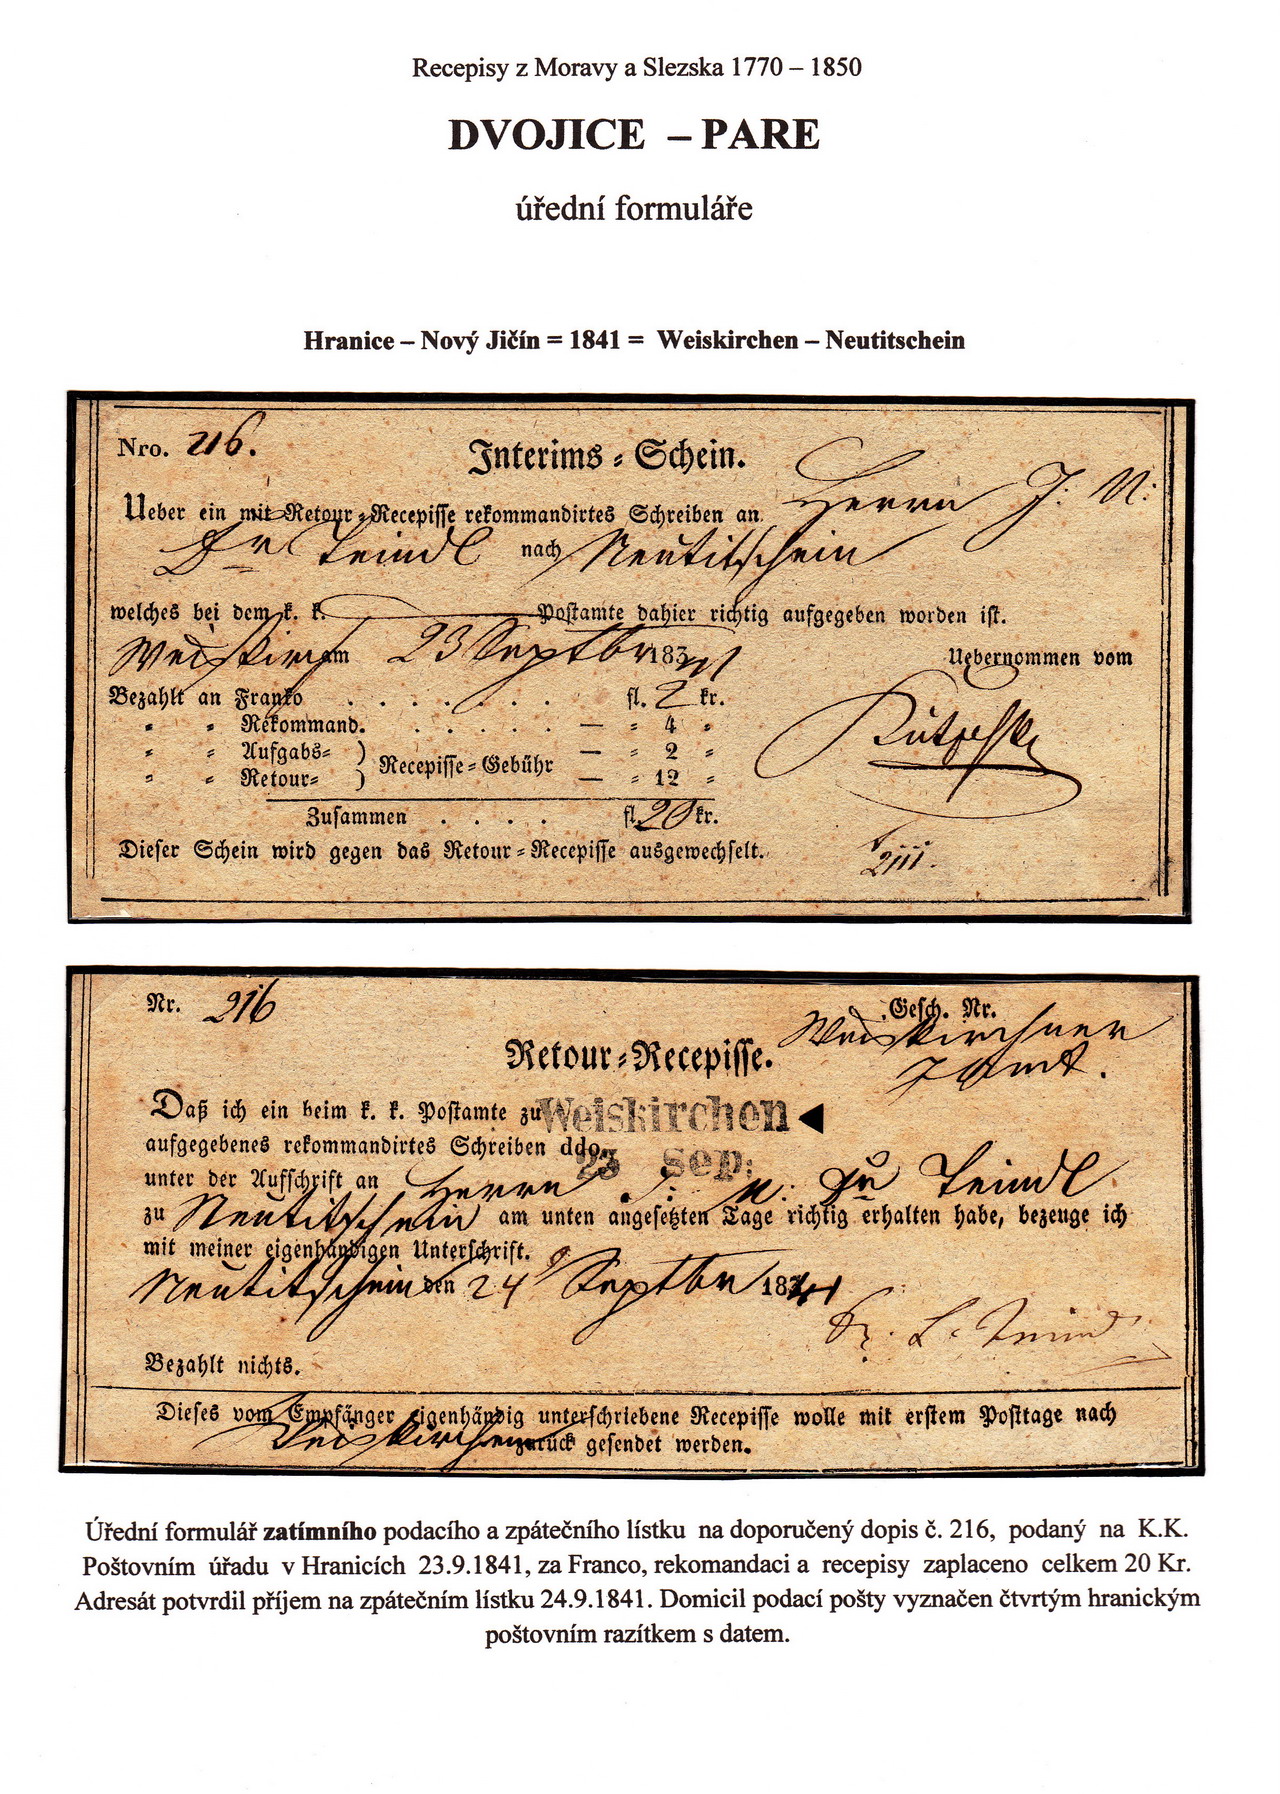 Recepisy z Moravy a Slezska 1770 – 1850
DVOJICE – PARE
úřední formuláře
Hranice – Nový Jičín = 1841 = Weiskirchen – Neutitschein
Nro. 216.
Interims-Schein.
Ueber ein mit Retour-Recepisse rekommandirtes Schreiben an Herrn J: N:
Dr Teindl nach Neutitschein
welches bei dem k. k. Postamte dahier richtig aufgegeben worden ist.
Weiskirch am 23 Septbr 18341
Uebernommen vom
Bezahlt an Franko . . . . . . . fl. 2 kr.
" " Rekommand. . . . . . . — " 4 "
" " Aufgabs- ) Recepisse-Gebühr — " 2 "
" " Retour- ) — " 12 "
Zusammen . . . . fl. 20 kr.
Dieser Schein wird gegen das Retour-Recepisse ausgewechselt.
Nr. 216
Gesch. Nr.
Weiskirchner
Retour-Recepisse.
Daß ich ein beim k. k. Postamte zu Weiskirchen
aufgegebenes rekommandirtes Schreiben ddo.
23 Sep:
unter der Aufschrift an Herrn J: N: Dr Teindl
zu Neutitschein am unten angesetzten Tage richtig erhalten habe, bezeuge ich
mit meiner eigenhändigen Unterschrift.
Neutitschein den 24 Septbr 18341
Bezahlt nichts.
Dieses vom Empfänger eigenhändig unterschriebene Recepisse wolle mit erstem Posttage nach
Weiskirchen zurück gesendet werden.
Úřední formulář zatímního podacího a zpátečního lístku na doporučený dopis č. 216, podaný na K.K.
Poštovním úřadu v Hranicích 23.9.1841, za Franco, rekomandaci a recepisy zaplaceno celkem 20 Kr.
Adresát potvrdil příjem na zpátečním lístku 24.9.1841. Domicil podací pošty vyznačen čtvrtým hranickým
poštovním razítkem s datem.